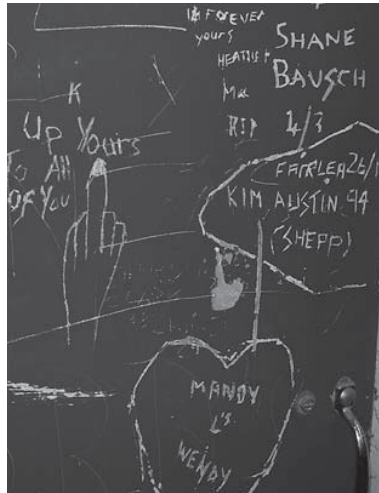 FOREVER
yours
SHANE
BAUSCH
4/3
RIP
K
Up Yours
To All
Of You
FAIRLEA 26/1
KIM AUSTIN 94
(SHEPP)
MANDY
L's
WENDY